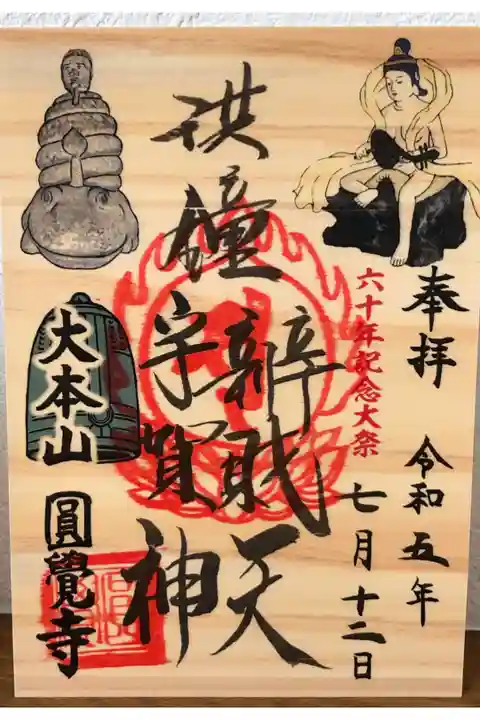 奉拝　令和五年
七月十二日
六十年記念大祭
洪鐘
辨財天
宇賀神
大本山
圓覺寺